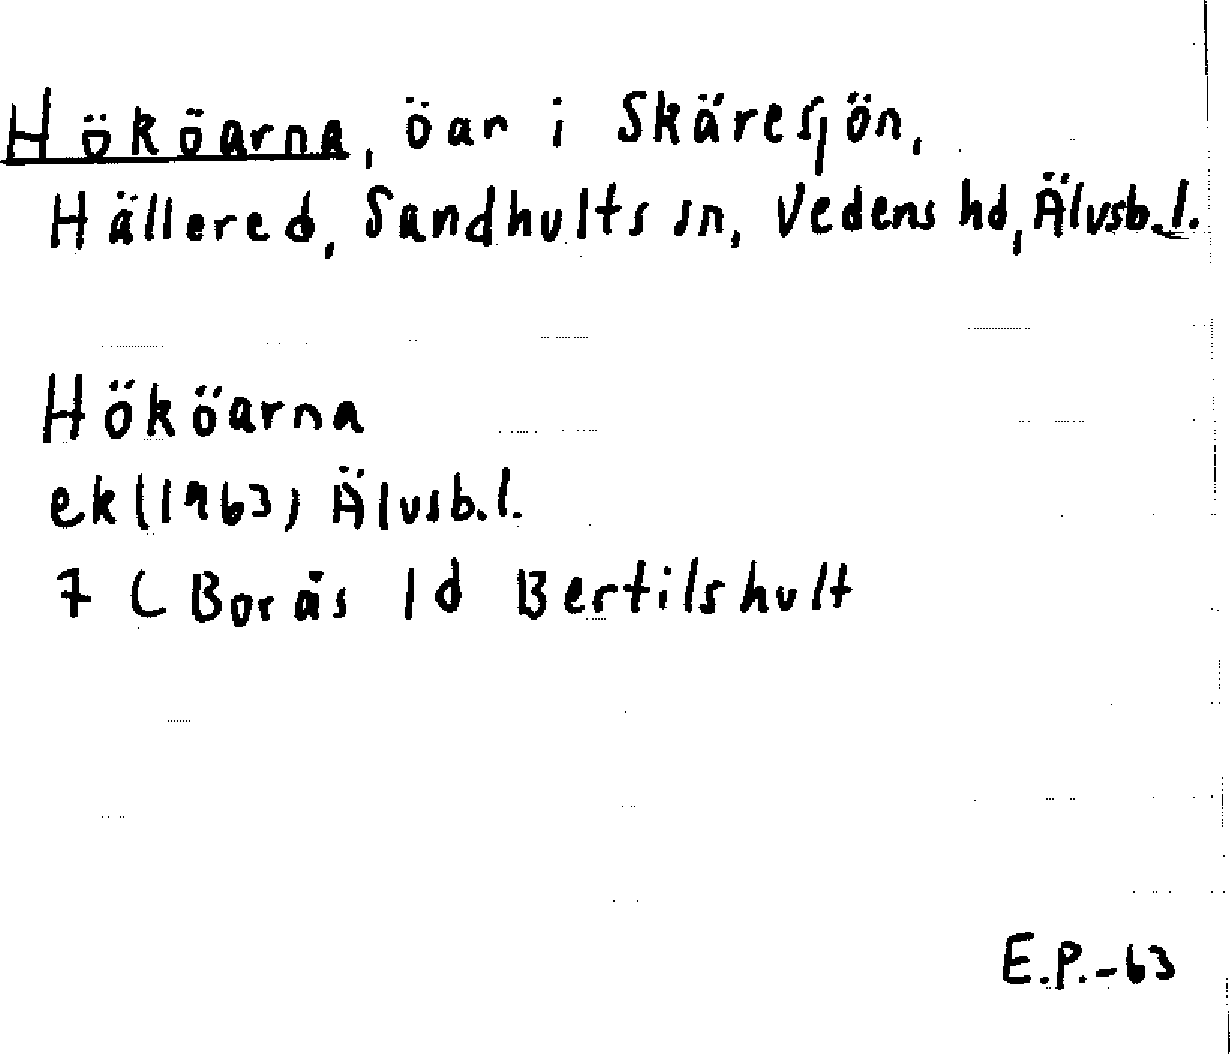 Hököarna, öar i Skäresjön,
Hällered, Sandhults sn, Vedens hd, Älvsb.l.
Hököarna
ek (1963) Älvsb.l.
7 C Borås 1d Bertilshult
E.P.-63